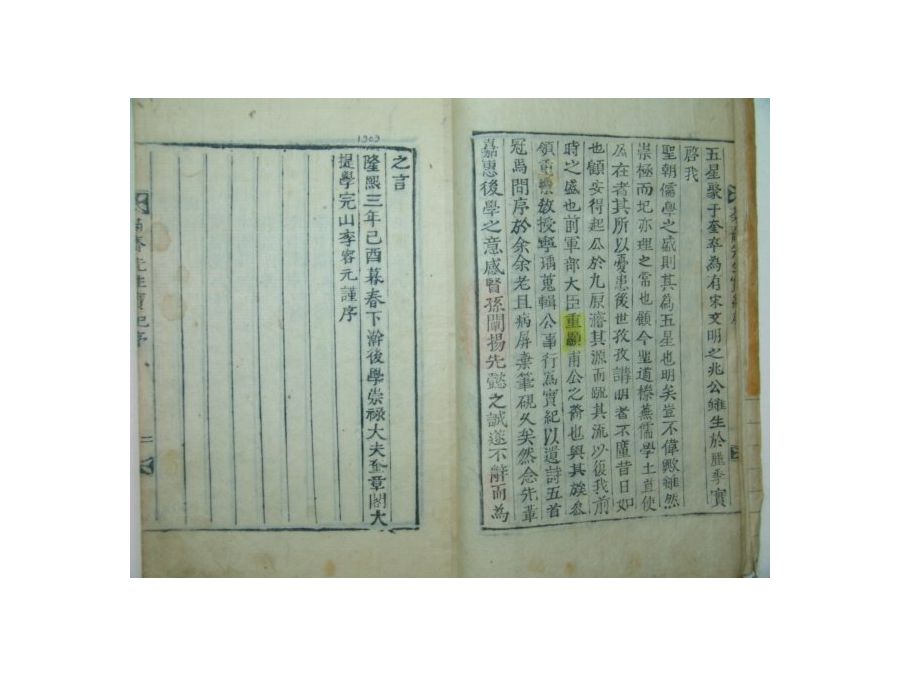 五星聚于奎卒為有宋文明之兆公雖生於麗季實
啓我
聖朝儒學之盛則其為五星也明矣豈不偉歟雖然
崇極而圮亦理之當也顧今聖道榛蕪儒學土苴使
公在者其所以憂患後世孜孜講明者不廑昔日如
也顧安得起公於九原濬其源而疏其流以復我前
時之盛也前軍部大臣重顯甫公之裔也與其族參
領 教授學瑀蒐輯公事行為實紀以遺詩五首
冠焉問序於余余老且病屏棄筆硯久矣然念先輩
嘉惠後學之意感賢孫闡揚先懿之誠遂不辭而為
之言
1909
隆熙三年己酉暮春下澣後學崇祿大夫奎章閣大
提學完山李容元謹序
齋先生實紀序
二